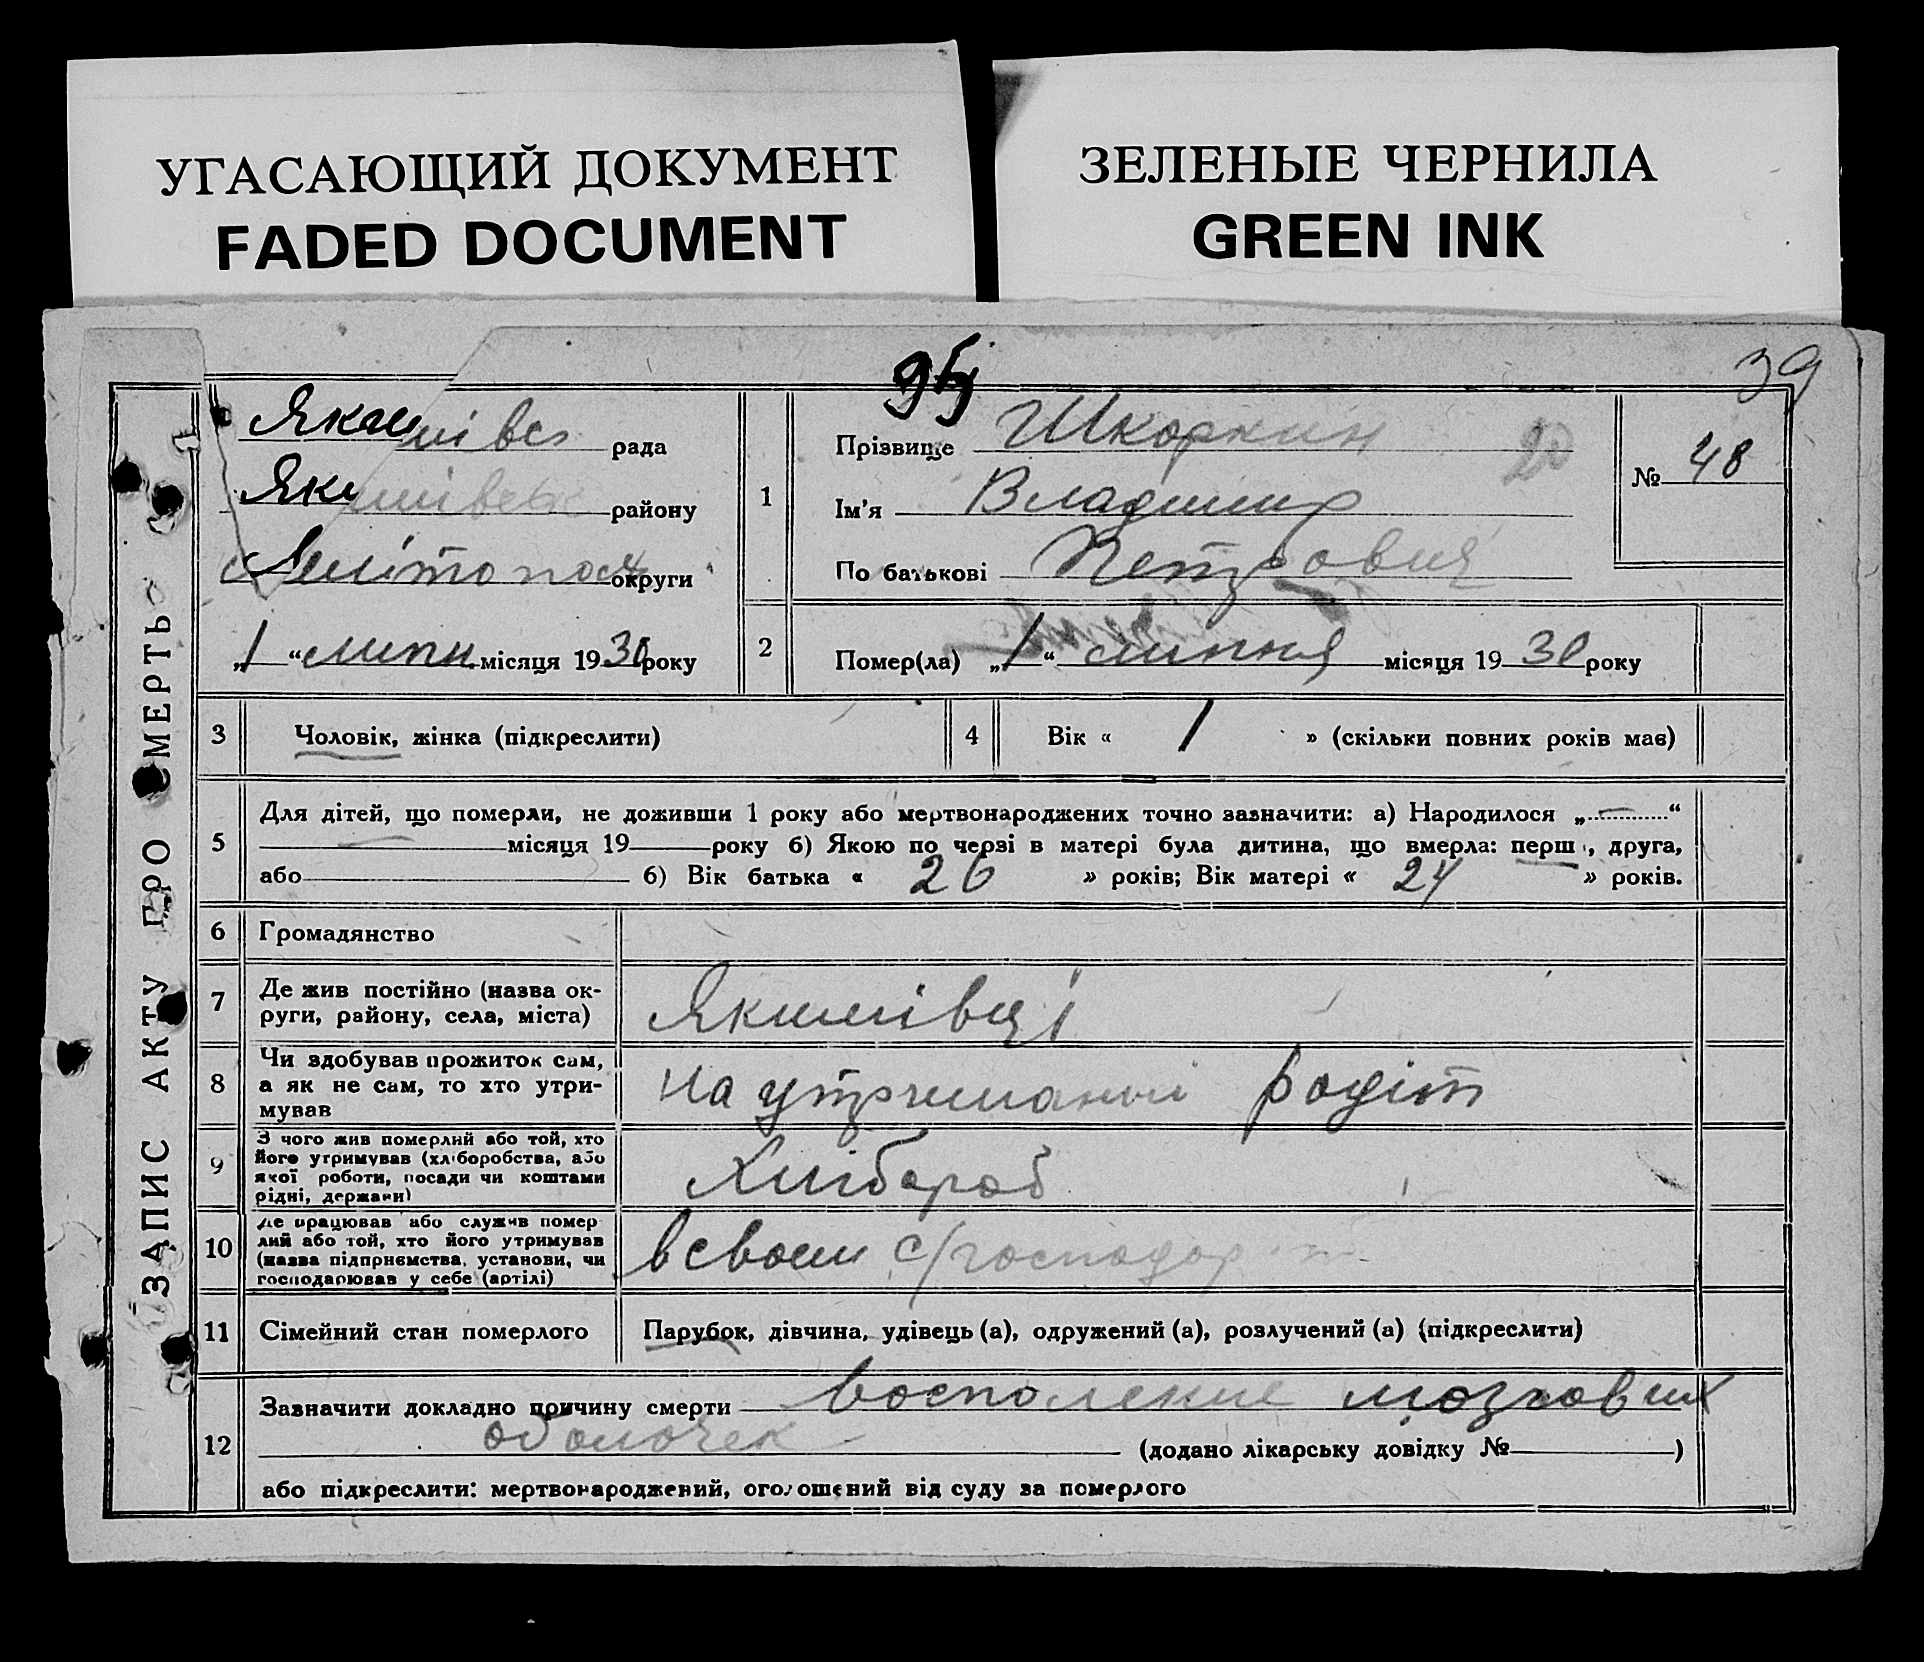 УГАСАЮЩИЙ ДОКУМЕНТ
FADED DOCUMENT
ЗЕЛЕНЫЕ ЧЕРНИЛА
GREEN INK
39
ЗАПИС АКТУ ПРО СМЕРТЬ
рада
району
округи
„1“ липн місяця 1930 року
1
Прізвище Шкоркин
20
Ім'я Владимир
По батькові Петрович
№ 48
2
Помер(ла) „1“ липня місяця 1930 року
3
Чоловік, жінка (підкреслити)
4
Вік « 1 » (скільки повних років має)
5
Для дітей, що померли, не доживши 1 року або мертвонароджених точно зазначити: а) Народилося „—“
— місяця 19 року б) Якою по черзі в матері була дитина, що вмерла: перш, друга,
або б) Вік батька « 26 » років; Вік матері « 24 » років.
6
Громадянство
7
Де жив постійно (назва ок-
руги, району, села, міста)
Якимівці
8
Чи здобував прожиток сам,
а як не сам, то хто утри-
мував
на утриманні родіт
9
З чого жив померлий або той, хто
його утримував (хліборобства, або
якої роботи, посади чи коштами
рідні, держави)
Хлібороб
10
Де працював або служив помер
лий або той, хто його утримував
(назва підприємства, установи, чи
господарював у себе (артілі)
в своем с/господар
11
Сімейний стан померлого
Парубок, дівчина, удівець (а), одружений (а), розлучений (а) (підкреслити)
12
Зазначити докладно причину смерти воспаление мозговых
оболочек (додано лікарську довідку № )
або підкреслити: мертвонароджений, оголошений від суду за померлого